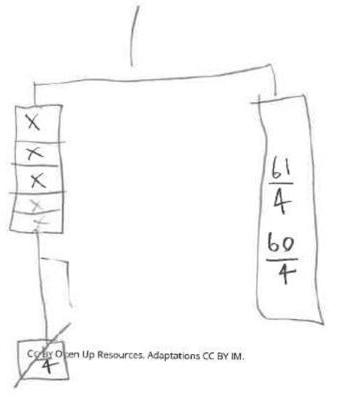 X
X
X
X
X
61
4
60
4
CC BY Open Up Resources. Adaptations CC BY IM.
4